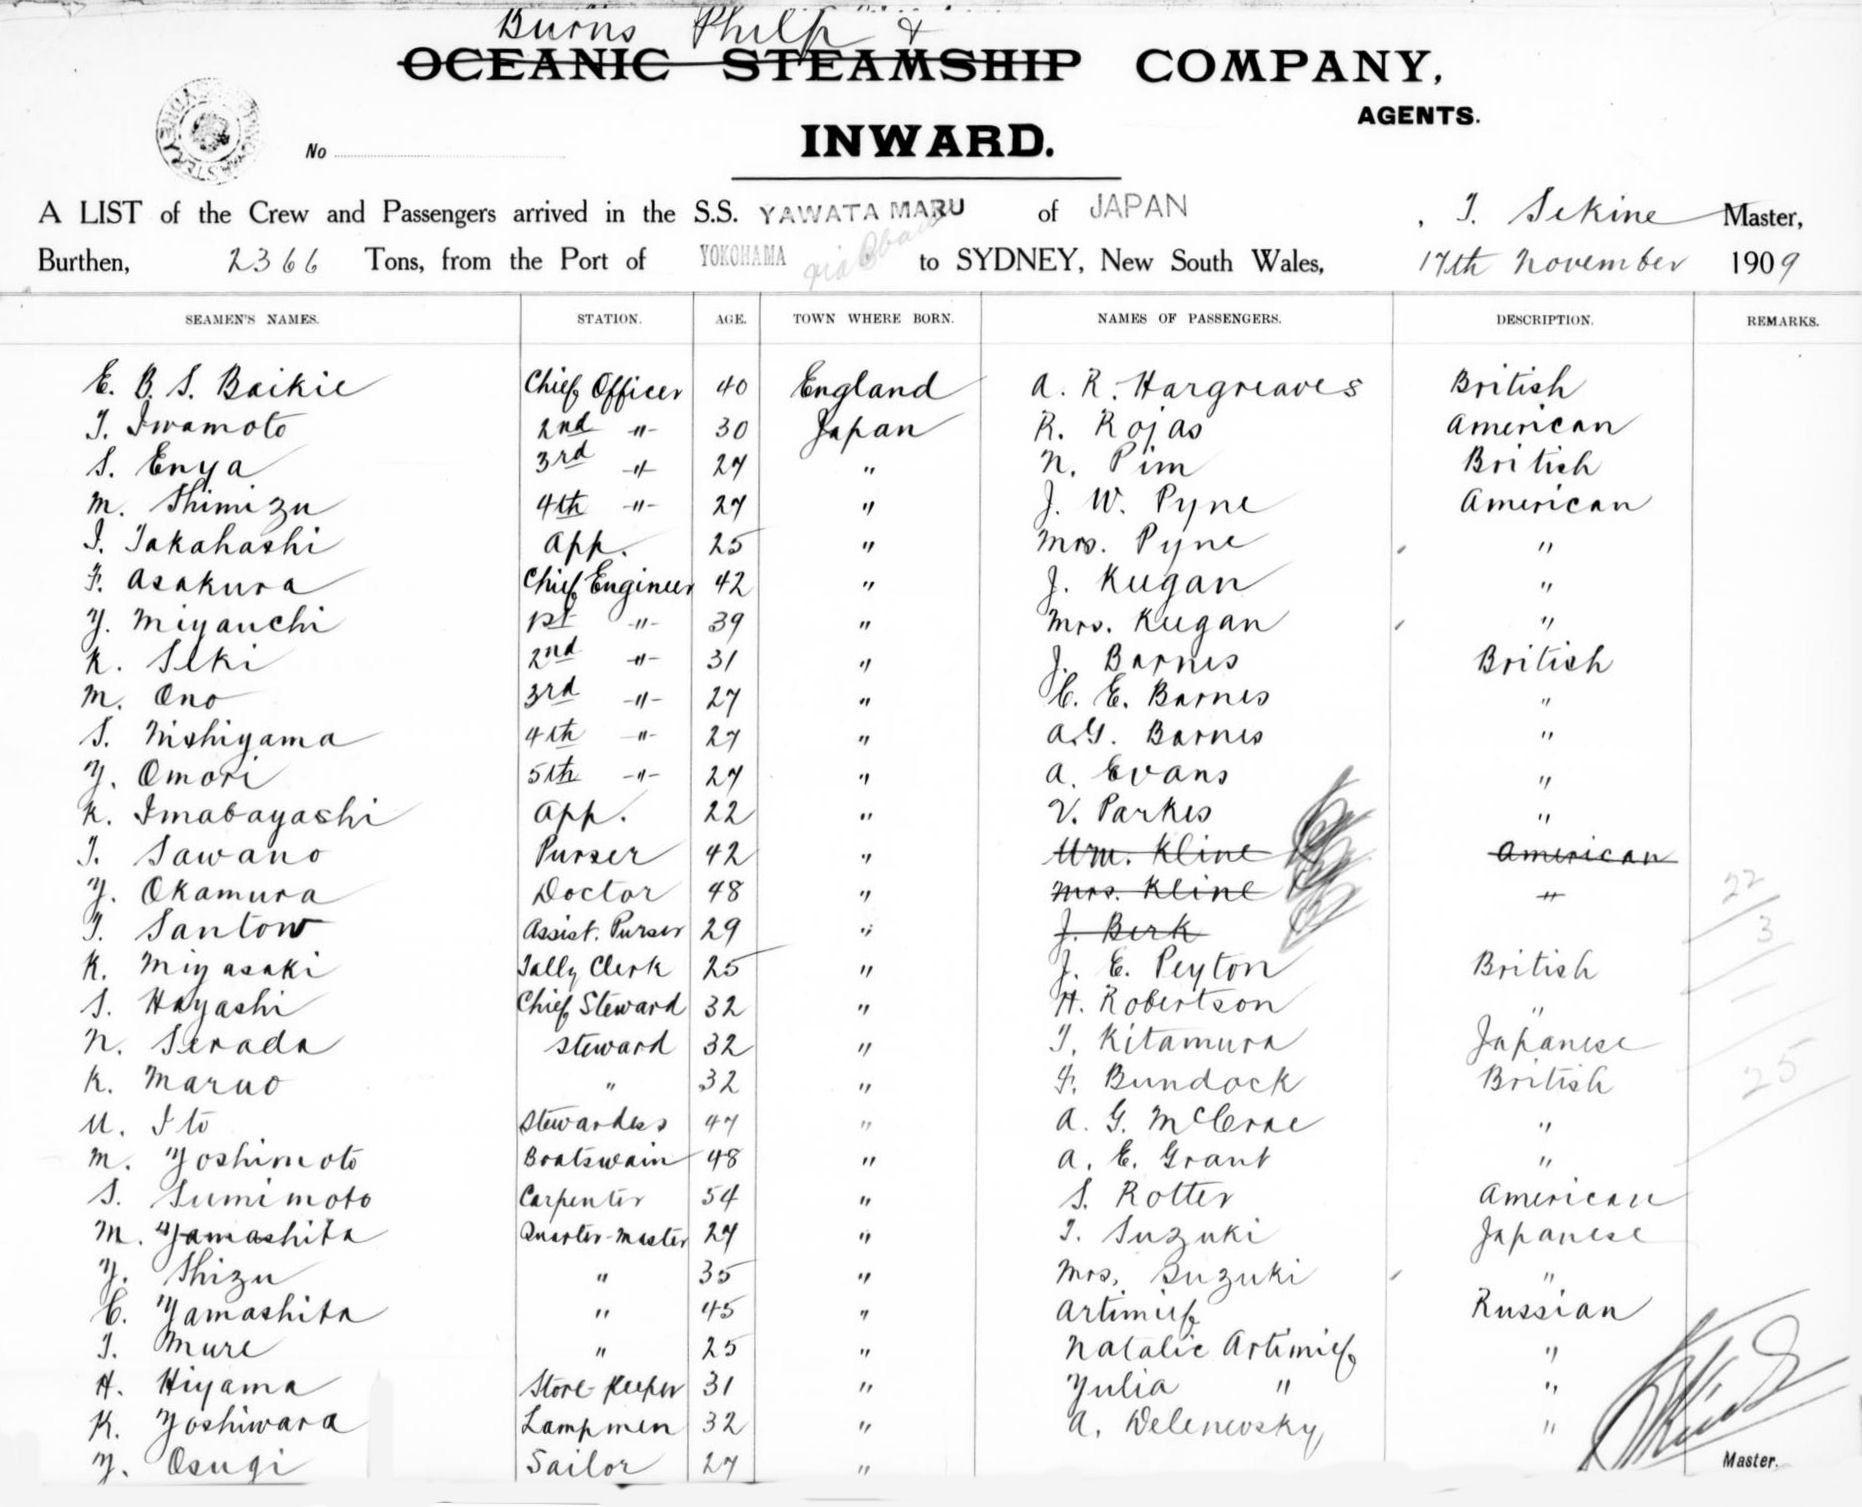 Burns Philp &
OCEANIC STEAMSHIP COMPANY,
AGENTS.
INWARD.
No
A LIST of the Crew and Passengers arrived in the S.S. YAWATA MARU of JAPAN , T. Sekine Master,
Burthen, 2366 Tons, from the Port of YOKOHAMA via to SYDNEY, New South Wales, 17th November 1909
SEAMEN'S NAMES. STATION. AGE. TOWN WHERE BORN. NAMES OF PASSENGERS. DESCRIPTION. REMARKS.
E. B. S. Baikie Chief Officer 40 England A. R. Hargreaves British
T. Iwamoto 2nd -"- 30 Japan R. Rojas American
S. Enya 3rd -"- 27 " N. Pim British
M. Shimizu 4th -"- 27 " J. W. Pyne American
I. Takahashi App. 25 " Mrs. Pyne "
F. Asakura Chief Engineer 42 " J. Keegan "
Y. Miyauchi 1st -"- 39 " Mrs. Keegan "
K. Seki 2nd -"- 31 " J. Barnes British
M. Ono 3rd -"- 27 " C. E. Barnes "
S. Nishiyama 4th -"- 27 " A.G. Barnes "
Y. Omori 5th -"- 27 " A. Evans "
K. Imabayashi App. 22 " V. Parkes "
T. Sawano Purser 42 " Wm. Kline American
Y. Okamura Doctor 48 " Mrs. Kline " 22
T. Santow Assist. Purser 29 " J. Berk 3
K. Miyasaki Tally Clerk 25 " J. E. Peyton British
S. Hayashi Chief Steward 32 " H. Robertson "
N. Serada Steward 32 " T. Kitamura Japanese
K. Maruo " 32 " F. Bundock British 25
U. Ito Stewardess 47 " A. G. McCrae "
M. Yoshimoto Boatswain 48 " A. E. Grant "
S. Sumimoto Carpenter 54 " S. Rotter American
M. Yamashita Quarter-Master 27 " T. Suzuki Japanese
Y. Shizu " 35 " Mrs. Suzuki "
C. Yamashita " 45 " Artimief Russian
T. Mure " 25 " Natalie Artimief "
H. Hiyama Store-keeper 31 " Yulia " "
K. Yoshiwara Lampmen 32 " A. Delenevsky "
Y. Osugi Sailor 27 "
Master.